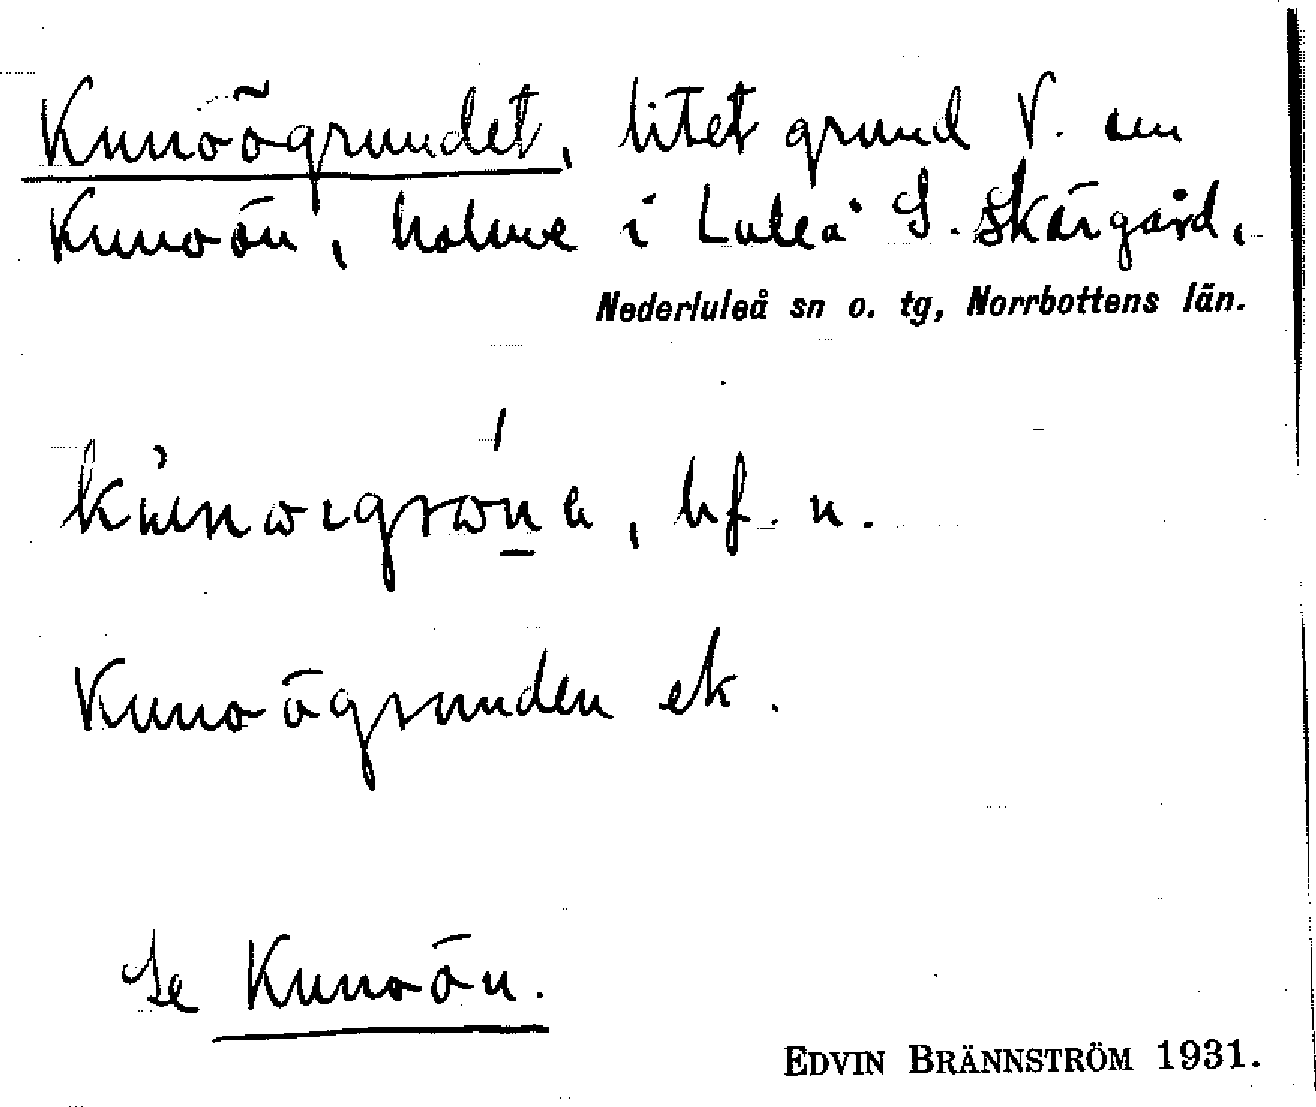 Kunoögrundet, litet grund V. om
Kunoön, holme i Luleå S. skärgård,
Nederluleå sn o. tg, Norrbottens län.
bf. n.
Kunoögrunden ek.
Se Kunoön.
EDVIN BRÄNNSTRÖM 1931.